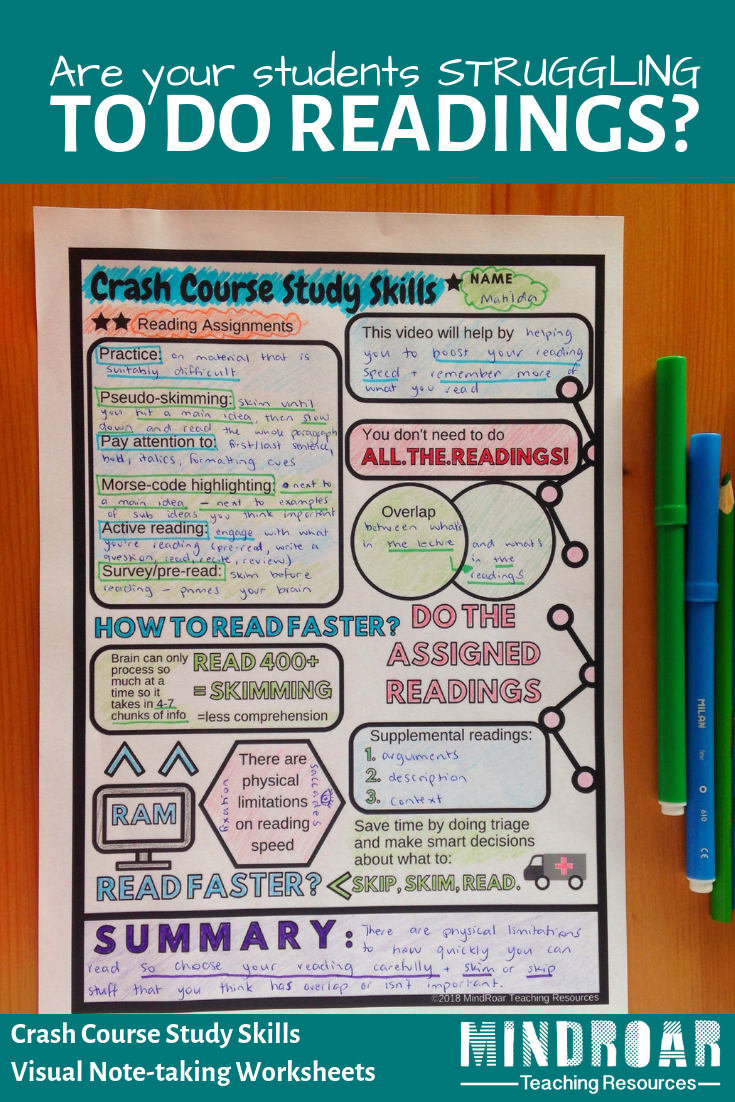 Are your students STRUGGLING
TO DO READINGS?
Crash Course Study Skills
NAME
Matilda
Reading Assignments
Practice: on material that is
suitably difficult
Pseudo-skimming: skim until
you hit a main idea, then slow
down and read the whole paragraph
Pay attention to: first/last sentence,
bold, italics, formatting cues
Morse-code highlighting: • next to
a main idea – next to examples
of sub ideas you think important
Active reading: engage with what
you're reading (pre-read, write a
question, read, recite, review)
Survey/pre-read: skim before
reading – primes your brain
This video will help by helping
you to boost your reading
speed + remember more of
what you read
You don't need to do
ALL.THE.READINGS!
Overlap
between what's
in the lecture
and what's
in the
readings
HOW TO READ FASTER?
Brain can only
process so
much at a
time so it
takes in 4-7
chunks of info
READ 400+
= SKIMMING
=less comprehension
DO THE
ASSIGNED
READINGS
RAM
There are
physical
limitations
on reading
speed
saccades
Supplemental readings:
1. arguments
2. description
3. context
Save time by doing triage
and make smart decisions
about what to:
READ FASTER? < SKIP, SKIM, READ.
SUMMARY: There are physical limitations
to how quickly you can
read so choose your reading carefully + skim or skip
stuff that you think has overlap or isn't important.
©2018 MindRoar Teaching Resources
MILAN
fine
610
CE
Crash Course Study Skills
Visual Note-taking Worksheets
MINDROAR
Teaching Resources